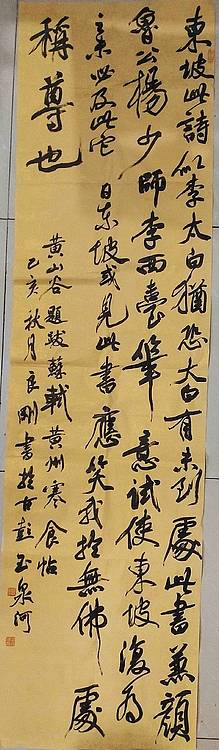 東坡此詩似李太白猶恐太白有未到處此書兼顏
魯公楊少師李西臺筆意試使東坡復為
之未必及此它日東坡或見此書應笑我於無佛處
稱尊也
黄山谷題跋蘇軾黄州寒食帖
乙亥秋月良剛書於古彭玉泉河